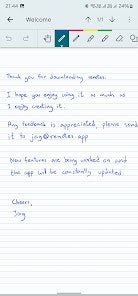 21:44
24%
Welcome
1/1
Thank you for downloading
I hope you enjoy using it as much as
I enjoy creating it.
Any feedback is appreciated, please send
it to
New features are being worked on and
the app will be constantly updated.
Cheers,